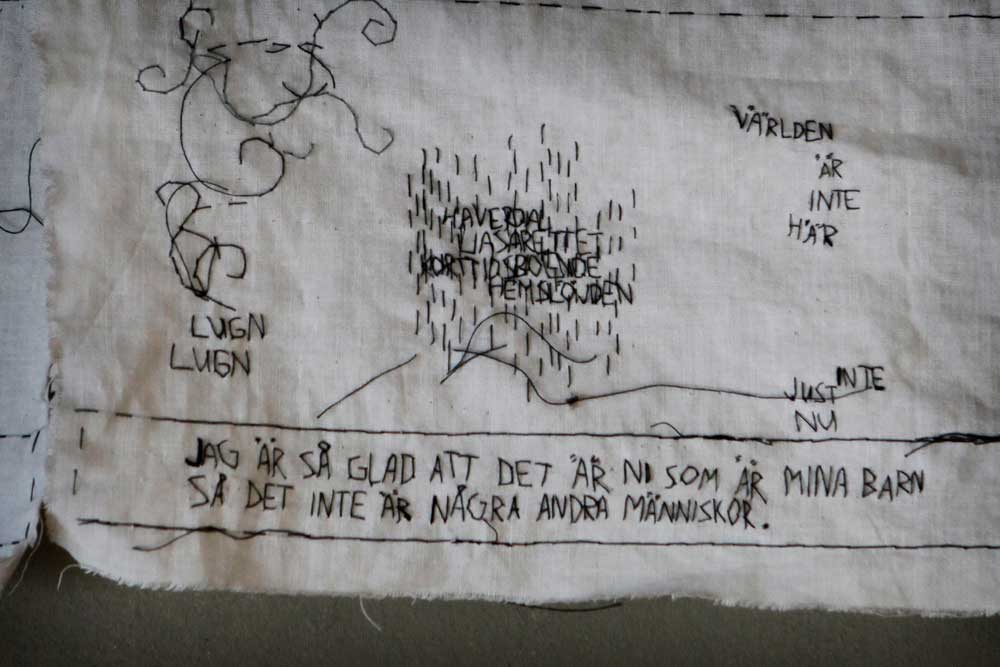 VÄRLDEN
ÄR
INTE
HÄR
KORTTIDSBOENDE
LUGN
LUGN
INTE
JUST
NU
JAG ÄR SÅ GLAD ATT DET ÄR NI SOM ÄR MINA BARN
SÅ DET INTE ÄR NÅGRA ANDRA MÄNNISKOR.